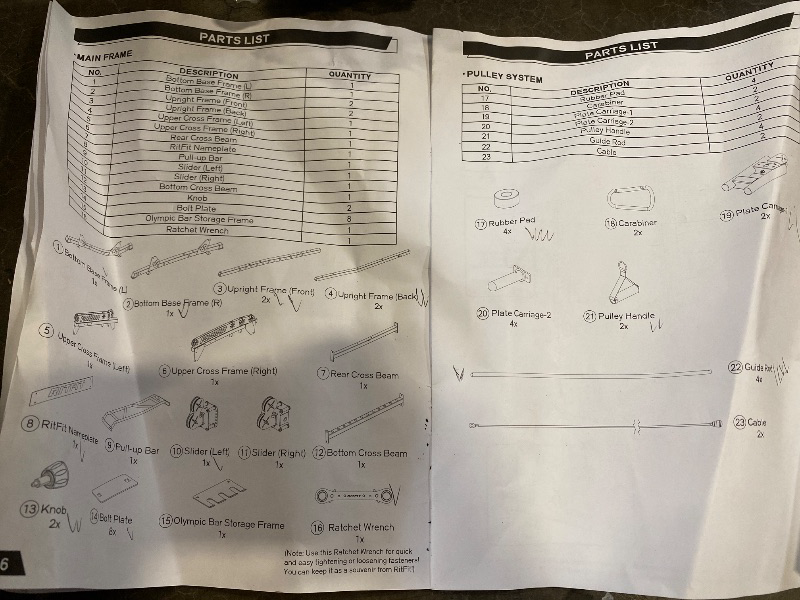 PARTS LIST
•MAIN FRAME
NO. DESCRIPTION QUANTITY
1 Bottom Base Frame (L) 1
2 Bottom Base Frame (R) 1
3 Upright Frame (Front) 2
4 Upright Frame (Back) 2
5 Upper Cross Frame (Left) 1
6 Upper Cross Frame (Right) 1
Rear Cross Beam 1
RitFit Nameplate 1
Pull-up Bar 1
Slider (Left) 1
Slider (Right) 1
Bottom Cross Beam 1
Knob 2
Bolt Plate 8
Olympic Bar Storage Frame 1
Ratchet Wrench 1
① Bottom Base Frame (L)
1x
② Bottom Base Frame (R)
1x
③ Upright Frame (Front)
2x
④ Upright Frame (Back)
2x
⑤ Upper Cross Frame (Left)
1x
⑥ Upper Cross Frame (Right)
1x
⑦ Rear Cross Beam
1x
⑧ RitFit Nameplate
1x
⑨ Pull-up Bar
1x
⑩ Slider (Left)
1x
⑪ Slider (Right)
1x
⑫ Bottom Cross Beam
1x
⑬ Knob
2x
⑭ Bolt Plate
8x
⑮ Olympic Bar Storage Frame
1x
⑯ Ratchet Wrench
1x
(Note: Use this Ratchet Wrench for quick
and easy tightening or loosening fasteners!
You can keep it as a souvenir from RitFit!)
6
PARTS LIST
•PULLEY SYSTEM
NO. DESCRIPTION QUANTITY
17 Rubber Pad 4
18 Carabiner 2
19 Plate Carriage-1 2
20 Plate Carriage-2 4
21 Pulley Handle 2
22 Guide Rod 4
23 Cable 2
⑰ Rubber Pad
4x
⑱ Carabiner
2x
⑲ Plate
2x
⑳ Plate Carriage-2
4x
㉑ Pulley Handle
2x
㉒ Guide Rod
4x
㉓ Cable
2x